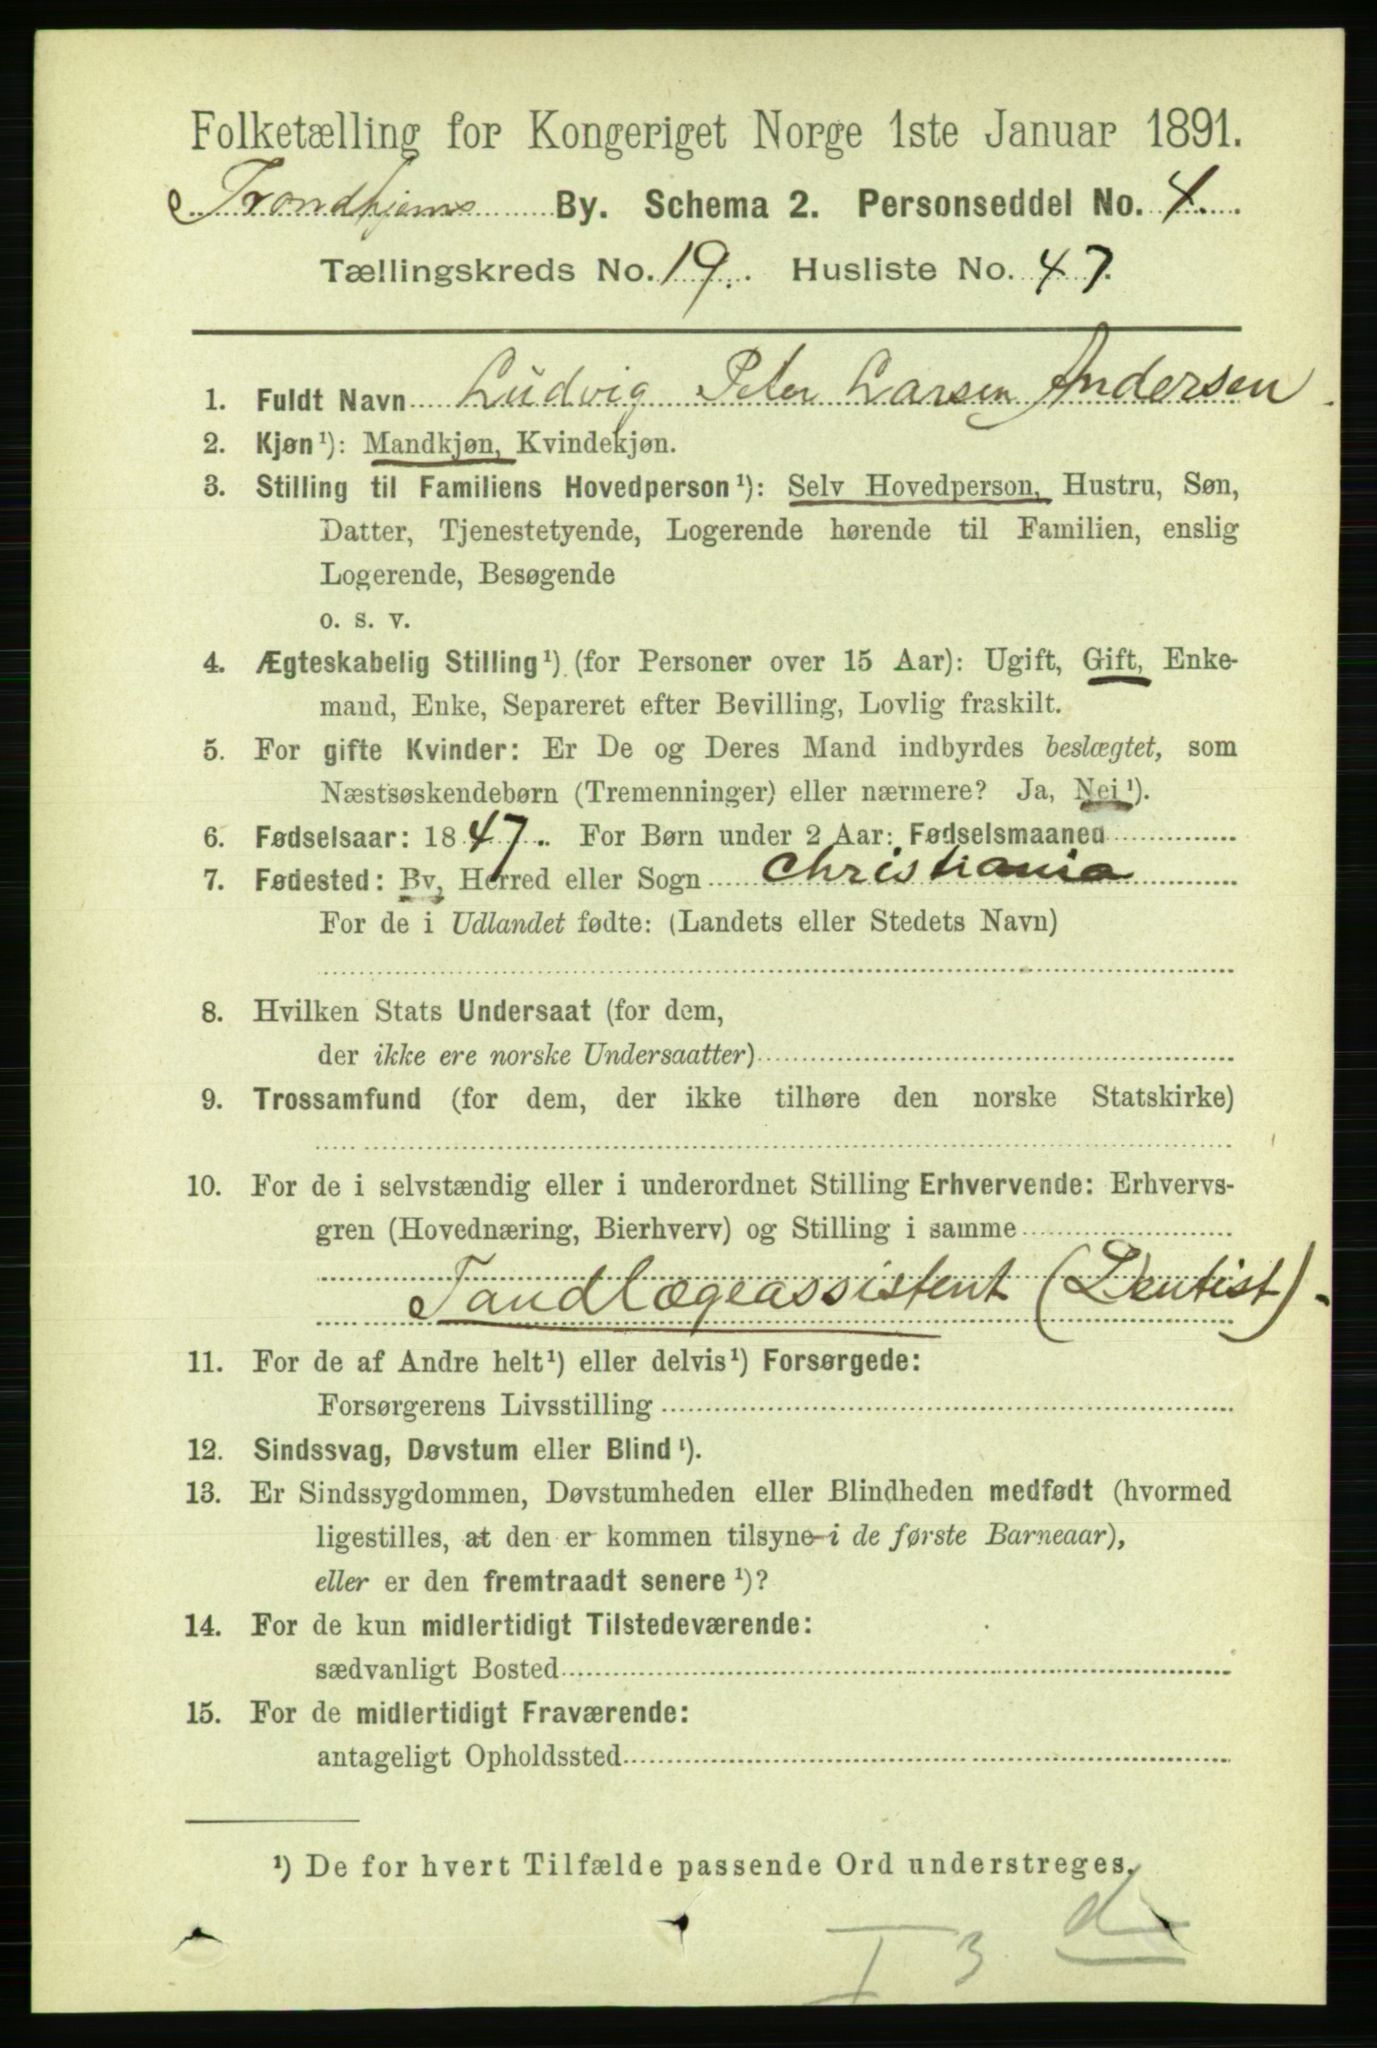 Folketælling for Kongeriget Norge 1ste Januar 1891.
Trondhjems By. Schema 2. Personseddel No. 4.
Tællingskreds No. 19. Husliste No. 47.
1. Fuldt Navn Ludvig Peter Larsen Andersen
2. Kjøn¹): Mandkjøn, Kvindekjøn.
3. Stilling til Familiens Hovedperson¹): Selv Hovedperson, Hustru, Søn,
Datter, Tjenestetyende, Logerende hørende til Familien, enslig
Logerende, Besøgende
o. s. v.
4. Ægteskabelig Stilling¹) (for Personer over 15 Aar): Ugift, Gift, Enke-
mand, Enke, Separeret efter Bevilling, Lovlig fraskilt.
5. For gifte Kvinder: Er De og Deres Mand indbyrdes beslægtet, som
Næstsøskendebørn (Tremenninger) eller nærmere? Ja, Nei¹).
6. Fødselsaar: 1847. For Børn under 2 Aar: Fødselsmaaned
7. Fødested: By, Herred eller Sogn Christiania
For de i Udlandet fødte: (Landets eller Stedets Navn)
8. Hvilken Stats Undersaat (for dem,
der ikke ere norske Undersaatter)
9. Trossamfund (for dem, der ikke tilhøre den norske Statskirke)
10. For de i selvstændig eller i underordnet Stilling Erhvervende: Erhvervs-
gren (Hovednæring, Bierhverv) og Stilling i samme
Tandlægeassistent (Dentist)
11. For de af Andre helt¹) eller delvis¹) Forsørgede:
Forsørgerens Livsstilling
12. Sindssvag, Døvstum eller Blind¹).
13. Er Sindssygdommen, Døvstumheden eller Blindheden medfødt (hvormed
ligestilles, at den er kommen tilsyne i de første Barneaar),
eller er den fremtraadt senere¹)?
14. For de kun midlertidigt Tilstedeværende:
sædvanligt Bosted
15. For de midlertidigt Fraværende:
antageligt Opholdssted
¹) De for hvert Tilfælde passende Ord understreges.
I 3 d